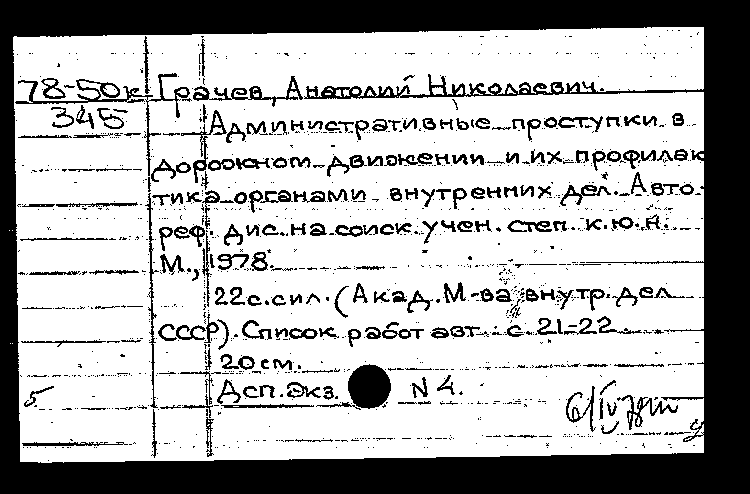 78-50к Грачев, Анатолий Николаевич.
345 Административные проступки в
дорожном движении и их профилак
тика органами внутренних дел. Авто-
реф. дис. на соиск. учен. степ. к.ю.н.
М., 1978.
22с. сил. (Акад. М-ва внутр. дел
СССР). Список работ авт.: с 21-22.
20 см.
5 Дсп. Экз. N 4.